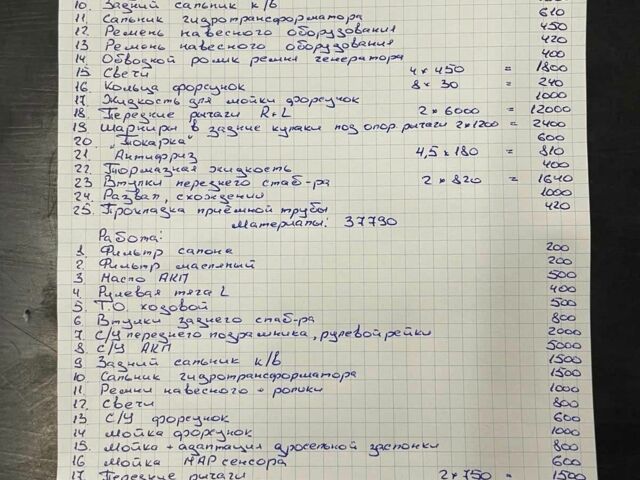 10. Задний сальник к/в
11. Сальник гидротрансформатора 610
12. Ремень навесного оборудования 450
13. Ремень навесного оборудования 420
14. Обводной ролик ремня генератора 400
15. Свечи 4 × 450 = 1800
16. Кольца форсунок 8 × 30 = 240
17. Жидкость для мойки форсунок 1000
18. Передние рычаги R+L 2 × 6000 = 12000
19. Шарниры в задние кулаки под опор. рычаги 2×1200 = 2400
20. "Токарка" 600
21. Антифриз 4,5 × 180 = 810
22. Тормозная жидкость 400
23. Втулки переднего стаб-ра 2 × 820 = 1640
24. Развал, схождения 1000
25. Прокладка приёмной трубы 420
Материалы: 37790
Работа:
1. Фильтр салона 200
2. Фильтр масляный 200
3. Масло АКП 500
4. Рулевая тяга L 400
5. Т.О. ходовой 500
6. Втулки заднего стаб-ра 800
7. С/У переднего подрамника, рулевой рейки 2000
8. С/У АКП 5000
9. Задний сальник к/в 1500
10. Сальник гидротрансформатора 1500
11. Ремни навесного + ролики 1000
12. Свечи 800
13. С/У форсунок 600
14. Мойка форсунок 1000
15. Мойка + адаптация дросельной заслонки 800
16. Мойка MAP сенсора 600
17. Передние рычаги 2×750 = 1500